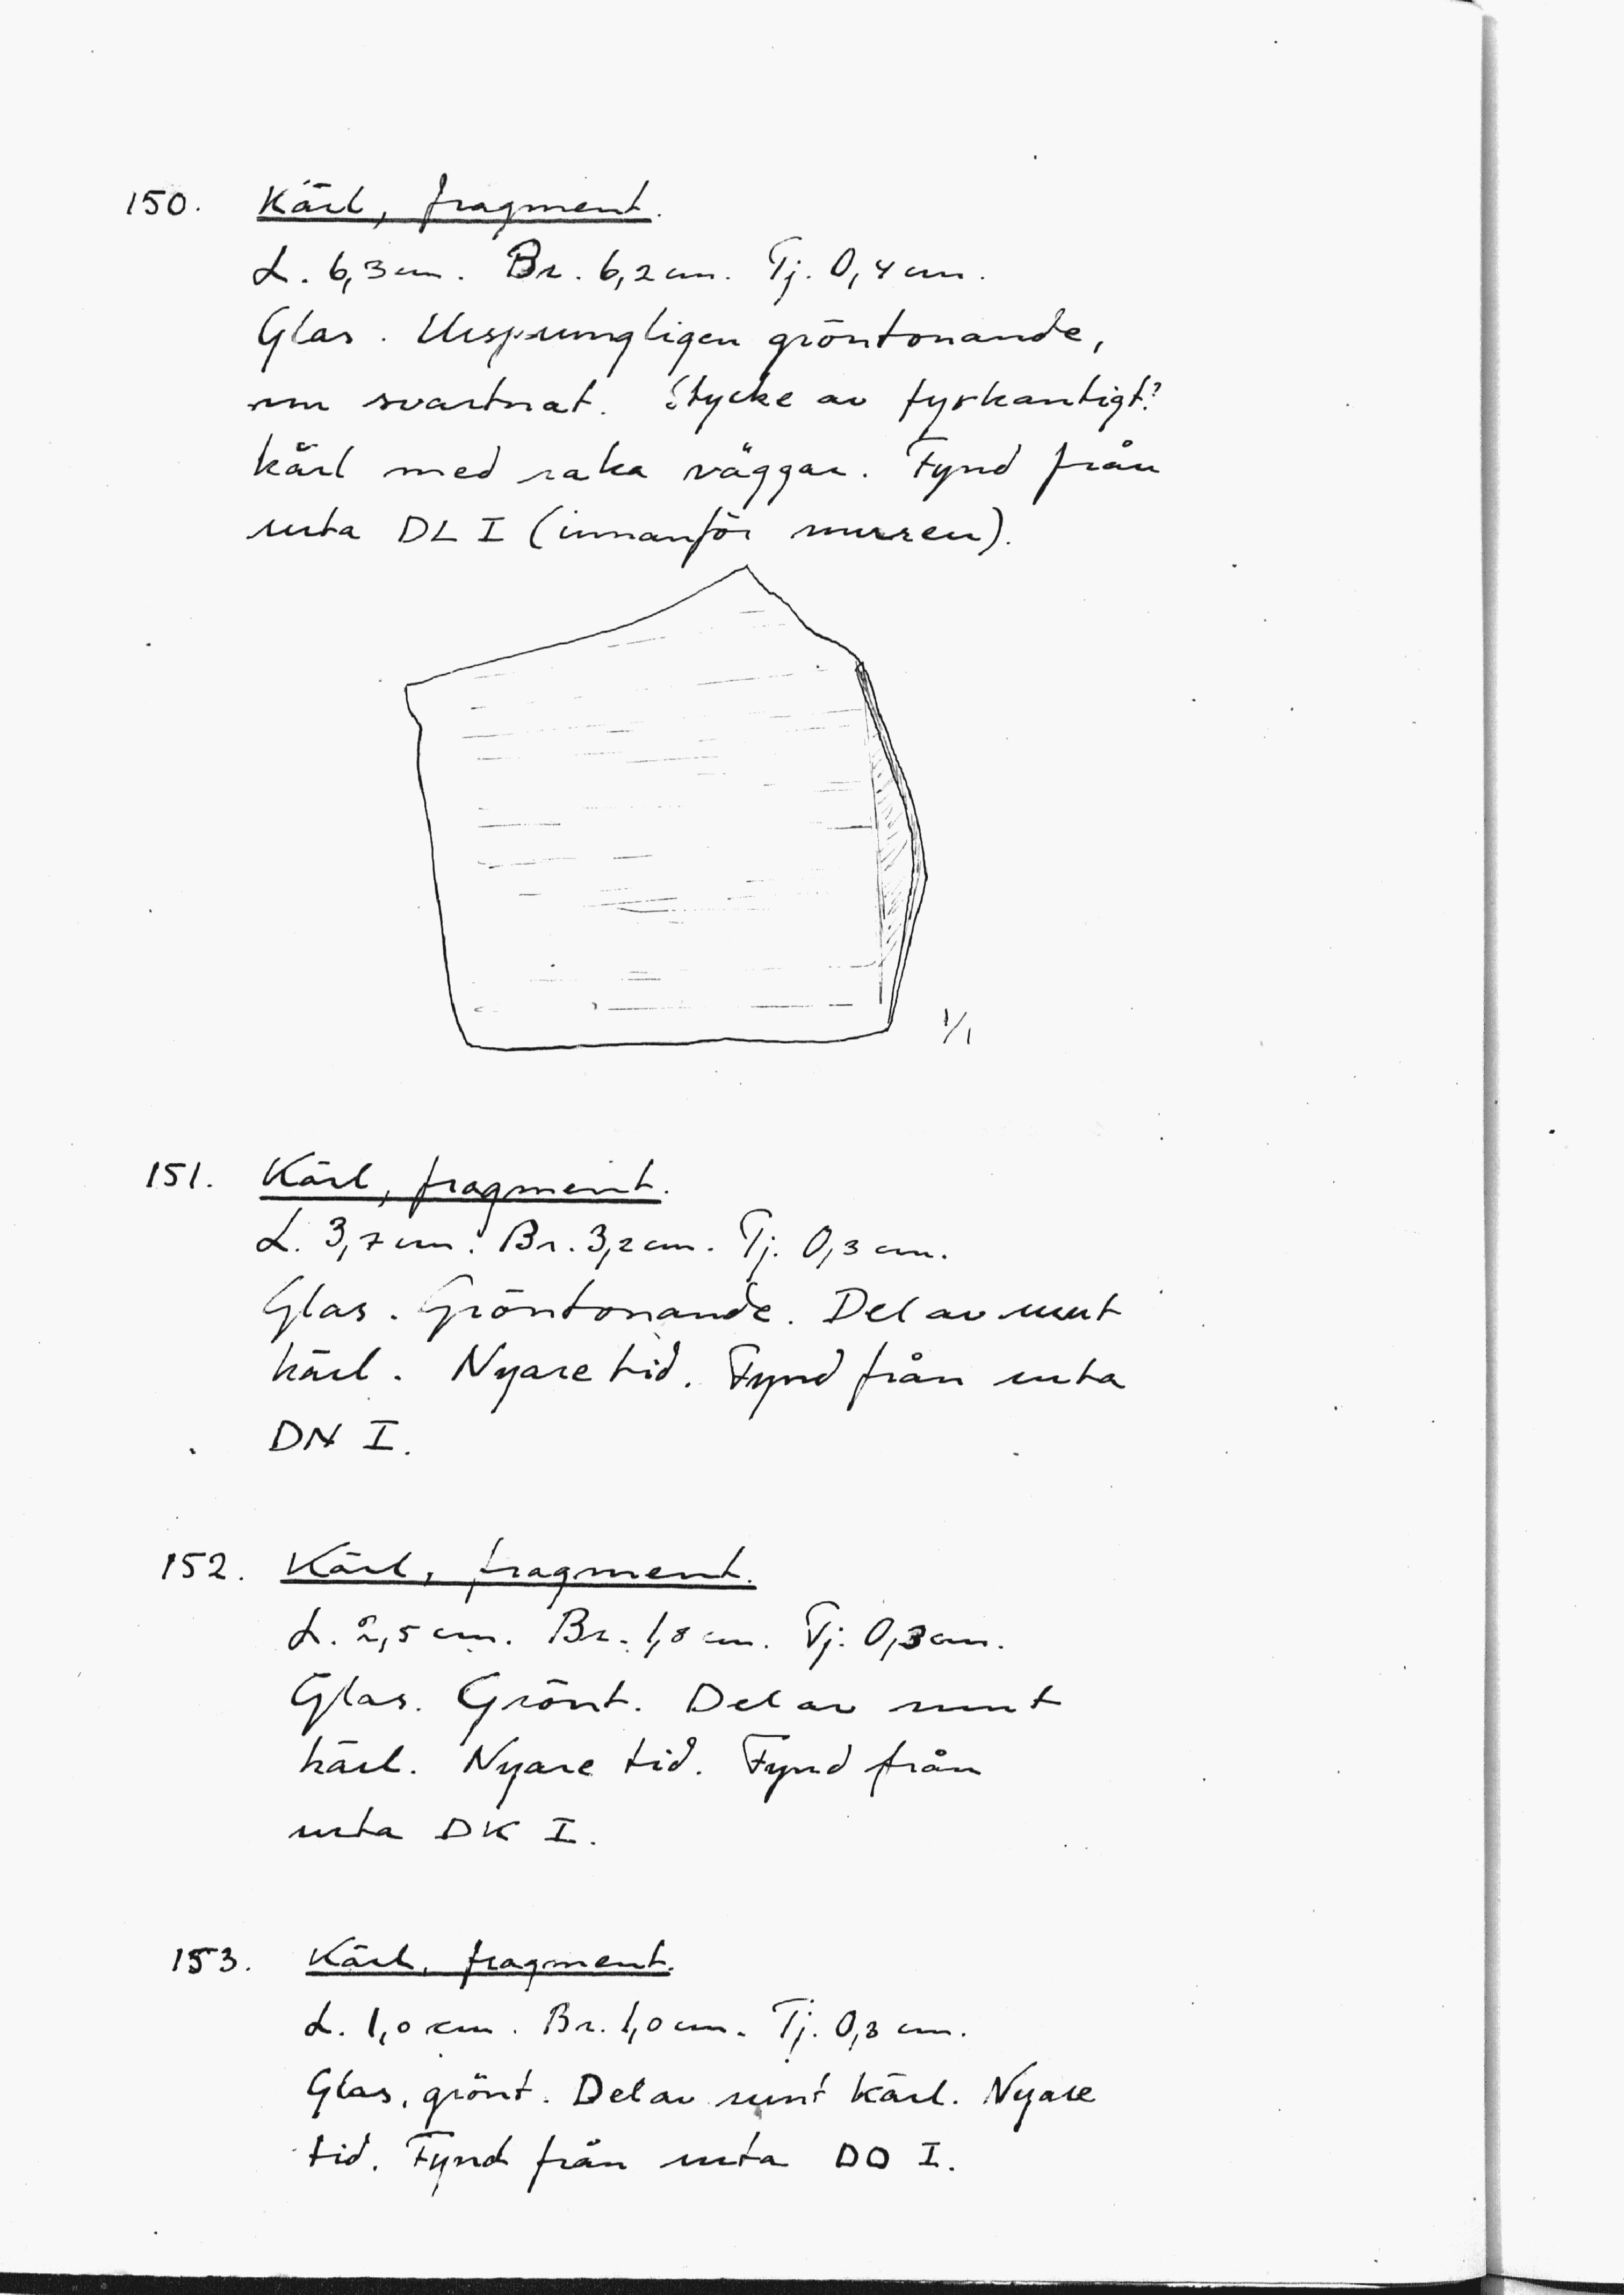 150. Kärl, fragment.
L. 6,3 cm. Br. 6,2 cm. Tj. 0,4 cm.
Glas. Ursprungligen gröntonande,
nu svartnat. Stycke av fyrkantigt?
kärl med raka väggar. Fynd från
ruta DL I (innanför muren).
1/1
151. Kärl, fragment.
L. 3,7 cm. Br. 3,2 cm. Tj. 0,3 cm.
Glas. Gröntonande. Del av runt
kärl. Nyare tid. Fynd från ruta
DN I.
152. Kärl, fragment.
L. 2,5 cm. Br. 1,8 cm. Tj. 0,3 cm.
Glas. Grönt. Del av runt
kärl. Nyare tid. Fynd från
ruta DK I.
153. Kärl, fragment.
L. 1,0 cm. Br. 1,0 cm. Tj. 0,3 cm.
Glas, grönt. Del av runt kärl. Nyare
tid. Fynd från ruta DO I.